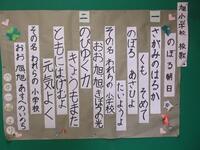 旭小学校 校歌
のぼる朝日
一
さがみのはるか
くも そめて
のぼる あさひよ
たいようよ
その名 われらの 小学校
おお 旭 旭 のぼる光
二
のびゆく
きょうもまた
ともにはげもよ
元気よく
その名 われらの 小学校
おお 旭 旭 あすへのいのち